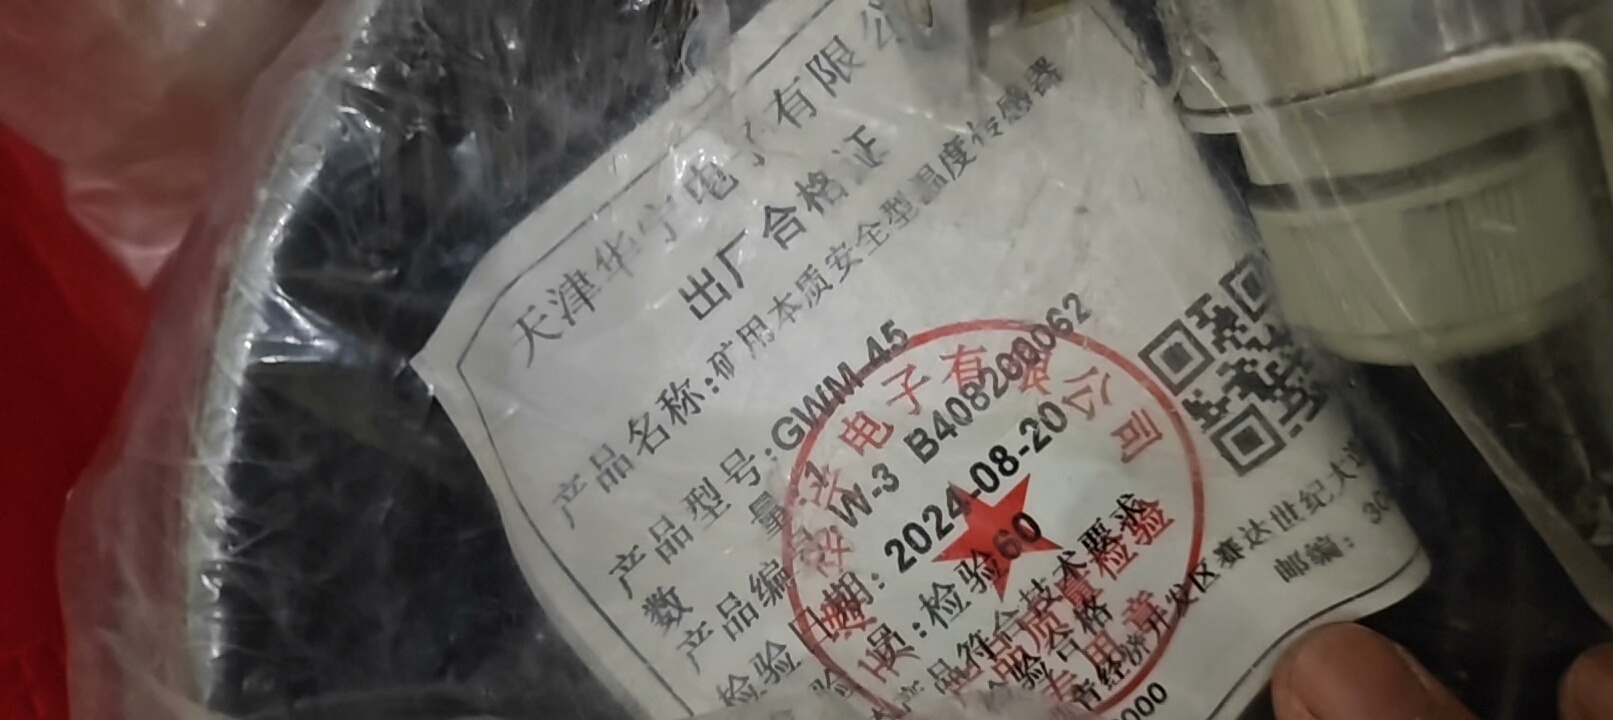 天津华宁电子有限公
出厂合格证
产品名称:矿用本质安全型温度传感器
产品型号:GWM-45
数 量:1
产品编号:W-3 B408200062
检验日期:2024-08-20
检验员:检验60
产品符合技术要求
检验合格
青经济开发区赛达世纪大道
邮编: 30
0000
电子有限公司
产品质量检验
专用章